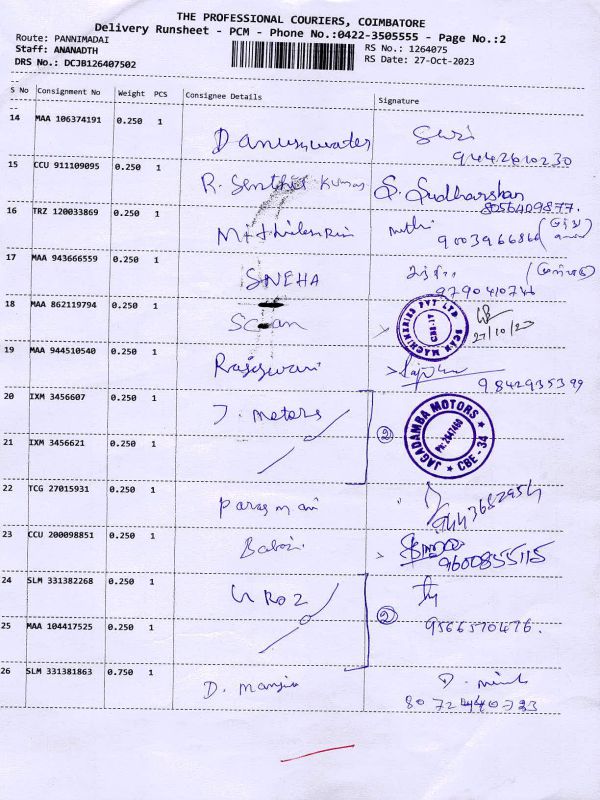 THE PROFESSIONAL COURIERS, COIMBATORE
Delivery Runsheet - PCM - Phone No.:0422-3505555 - Page No.:2
Route: PANNIMADAI RS No.: 1264075
Staff: ANANADTH RS Date: 27-Oct-2023
DRS No.: DCJB126407502
S No Consignment No Weight PCS Consignee Details Signature
14 MAA 106374191 0.250 1
9442610230
15 CCU 911109095 0.250 1 R. Senthil Kumar S. Sudharshan
8056409877.
16 TRZ 120033869 0.250 1
9003966866
17 MAA 943666559 0.250 1 SNEHA
9790410746
18 MAA 862119794 0.250 1 Scan SCAN MACHINERIES PVT LTD CBE-17 27/10/23
19 MAA 944510540 0.250 1 Rajeswari
9842935399
20 IXM 3456607 0.250 1 J. Motors 2 JAGADAMBA MOTORS CBE-34 PH:2647460
21 IXM 3456621 0.250 1
22 TCG 27015931 0.250 1 Parasmani 9443682954
23 CCU 200098851 0.250 1 Babai
9600855115
24 SLM 331382268 0.250 1 2
25 MAA 104417525 0.250 1 9566570476.
26 SLM 331381863 0.750 1 D.
8072440723